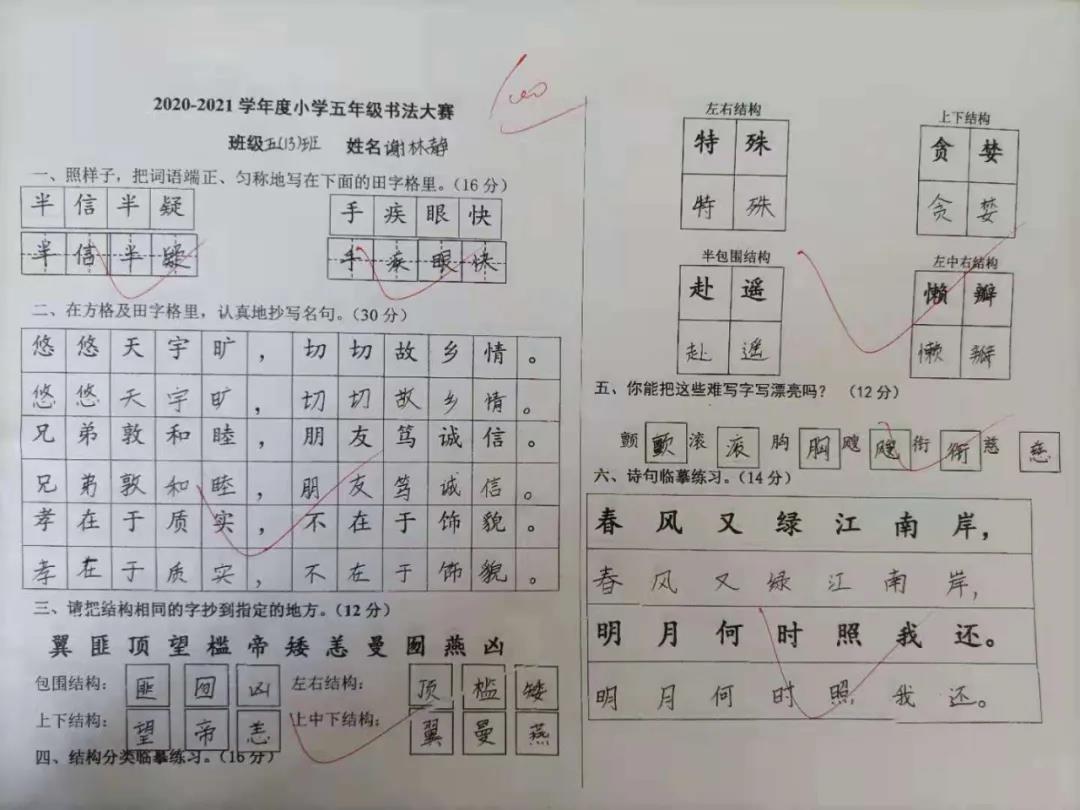 2020-2021 学年度小学五年级书法大赛
班级五(13)班 姓名谢林静
一、照样子，把词语端正、匀称地写在下面的田字格里。（16 分）
半信半疑 手疾眼快
半信半疑 手疾眼快
二、在方格及田字格里，认真地抄写名句。（30 分）
悠悠天宇旷，切切故乡情。
悠悠天宇旷，切切故乡情。
兄弟敦和睦，朋友笃诚信。
兄弟敦和睦，朋友笃诚信。
孝在于质实，不在于饰貌。
孝在于质实，不在于饰貌。
三、请把结构相同的字抄到指定的地方。（12 分）
翼 匪 顶 望 槛 帝 矮 恙 曼 囫 燕 凶
包围结构： 匪 囫 凶 左右结构： 顶 槛 矮
上下结构： 望 帝 恙 上中下结构： 翼 曼 燕
四、结构分类临摹练习。（16 分）
100
左右结构 上下结构
特殊 贪婪
特殊 贪婪
半包围结构 左中右结构
赴遥 懒瓣
赴遥 懒瓣
五、你能把这些难写字写漂亮吗？ （12 分）
颤 颤 滚 滚 胸 胸 飕 飕 衔 衔 慈 慈
六、诗句临摹练习。（14 分）
春风又绿江南岸，
春风又绿江南岸，
明月何时照我还。
明月何时照我还。